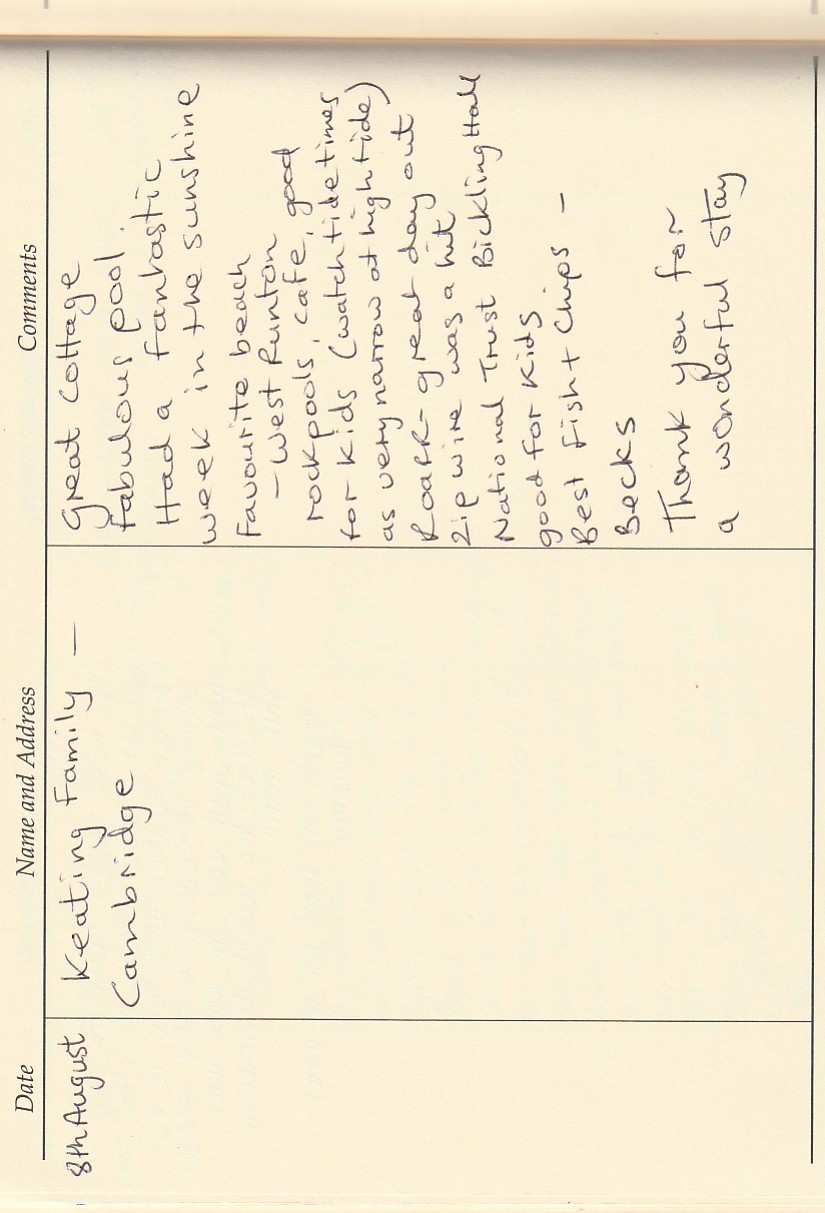 Date Name and Address Comments
8th August
Keating Family –
Cambridge
Great Cottage
fabulous pool.
Had a fantastic
week in the sunshine
Favourite beach
– West Runton
rockpools, cafe, good
for kids (watch tide times
as very narrow at high tide)
RoaRR- great day out
Zip wire was a hit
National Trust Bickling Hall
good for kids
Best Fish + Chips –
Becks
Thank you for
a wonderful stay